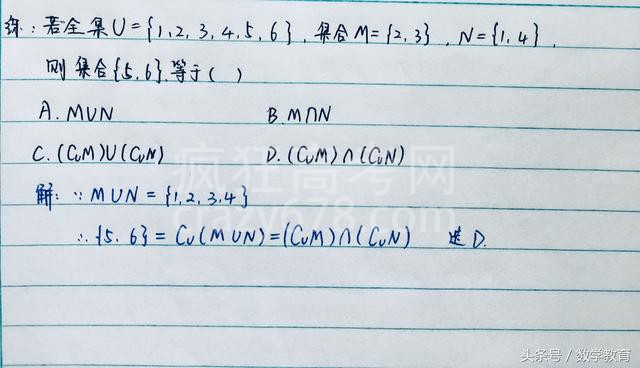 练：若全集U={1,2,3,4,5,6},集合M={2,3},N={1,4},
则集合{5,6}等于( )
A. M∪N B. M∩N
C. (C∪M)∪(C∪N) D. (C∪M)∩(C∪N)
疯狂高考网
crazy678.com
解：∵M∪N={1,2,3,4}
∴{5,6}=C∪(M∪N)=(C∪M)∩(C∪N) 选D.
头条号 / 数学教育